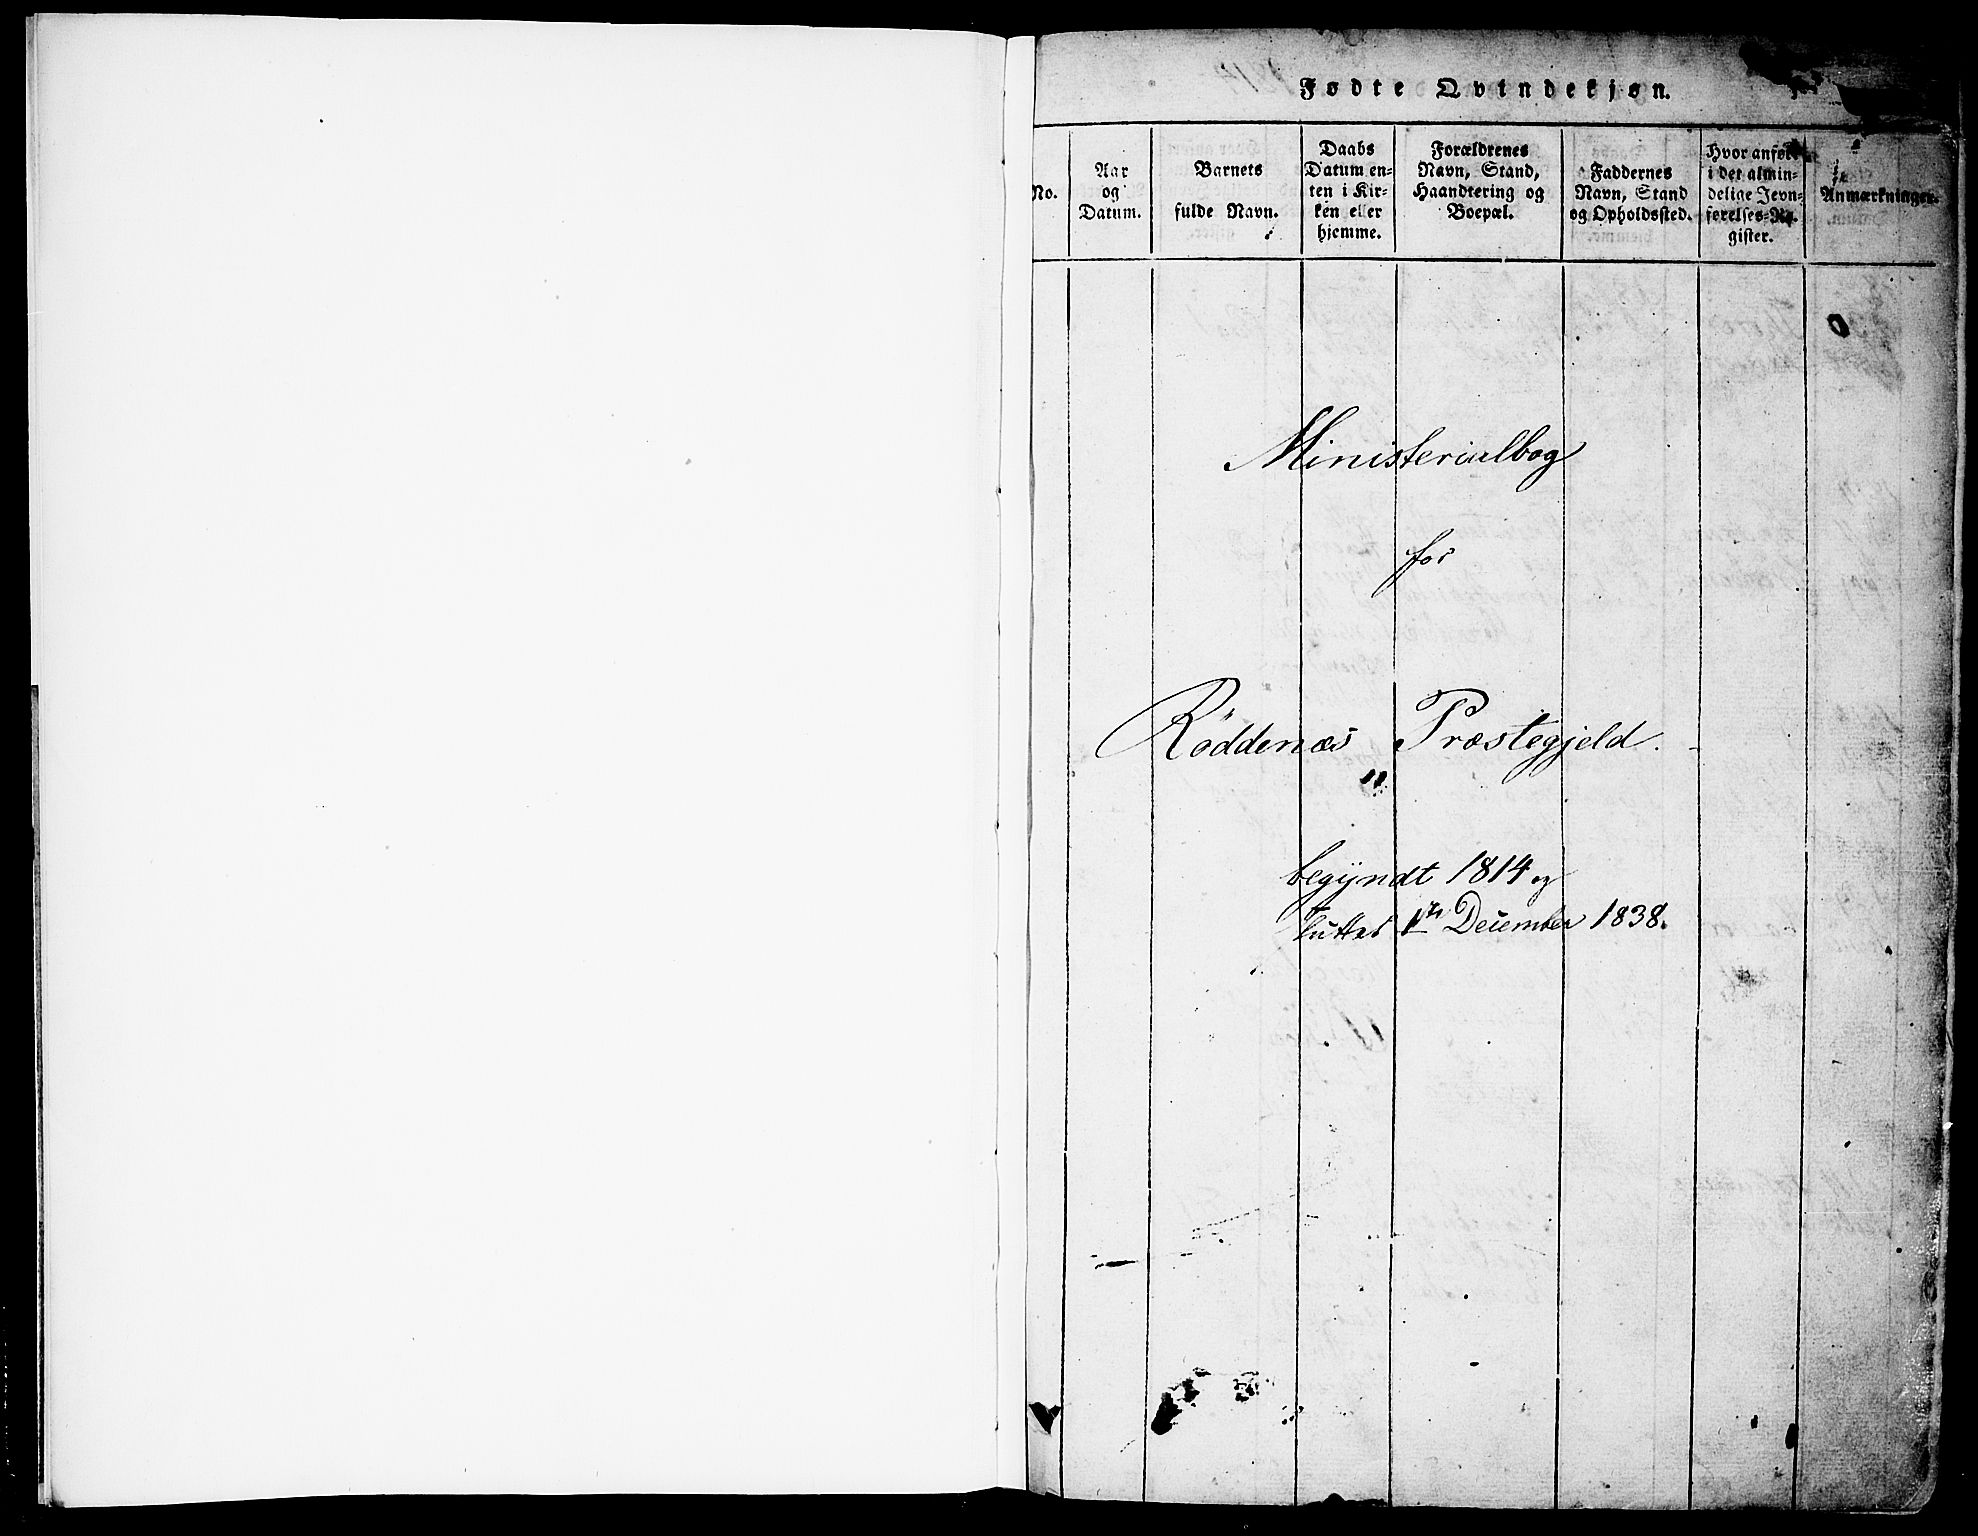 Fødte Qvindekjøn.
No.
Aar
og
Datum.
Barnets
fulde Navn.
Daabs
Datum en-
ten i Kir-
ken eller
hjemme.
Forældrenes
Navn, Stand,
Haandtering og
Boepæl.
Faddernes
Navn, Stand
og Opholdssted.
Hvor anført
i det almin-
delige Jevn-
førelses-Re-
gister.
Anmærkninger.
Ministerialbog
for
Röddenæs Præstegjeld.
begyndt 1814 og
sluttet 1ste December 1838.